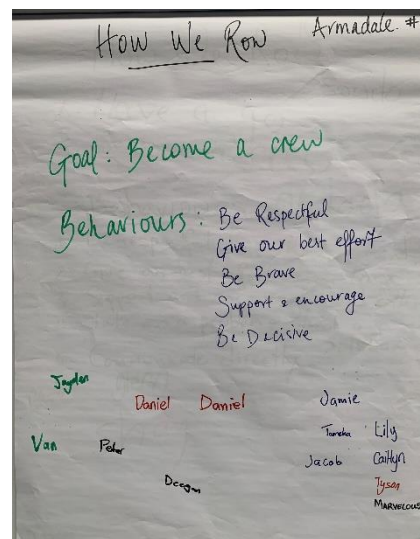 How We Row
Armadale. #
Goal: Become a crew
Behaviours: Be Respectful
Give our best effort
Be Brave
Support & encourage
Be Decisive
Jayden
Daniel Daniel
Jamie
Tameka Lily
Van Peter
Jacob Caitlyn
Deegan
Tyson
MARVELOUS